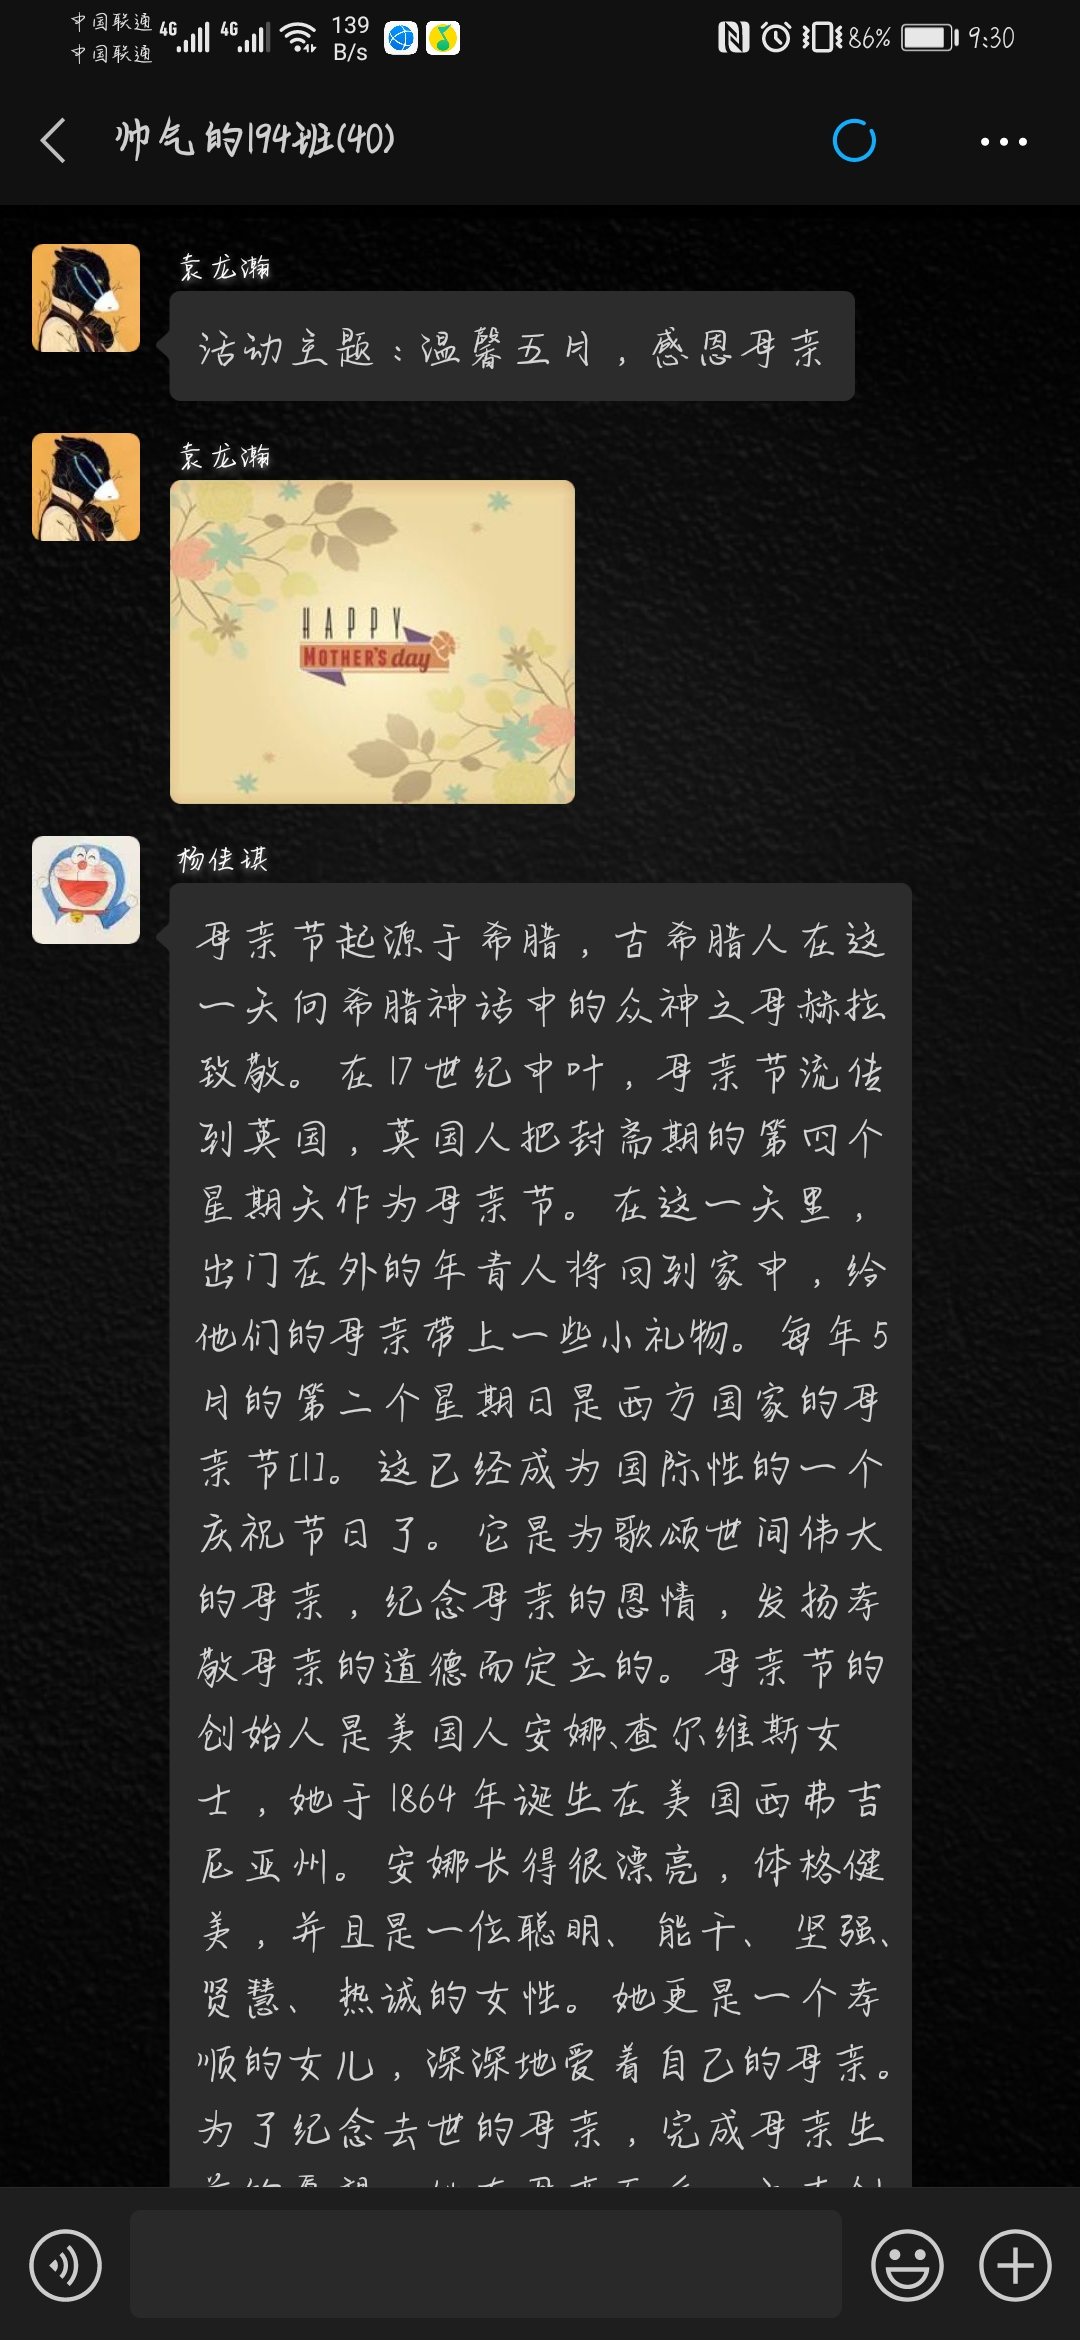 中国联通 4G 4G 139 86% 9:30
中国联通 B/s
帅气的194班(40)
袁龙瀚
活动主题：温馨五月，感恩母亲
袁龙瀚
HAPPY
MOTHER'S day
杨佳琪
母亲节起源于希腊，古希腊人在这
一天向希腊神话中的众神之母赫拉
致敬。在17世纪中叶，母亲节流传
到英国，英国人把封斋期的第四个
星期天作为母亲节。在这一天里，
出门在外的年青人将回到家中，给
他们的母亲带上一些小礼物。每年5
月的第二个星期日是西方国家的母
亲节[1]。这已经成为国际性的一个
庆祝节日了。它是为歌颂世间伟大
的母亲，纪念母亲的恩情，发扬孝
敬母亲的道德而定立的。母亲节的
创始人是美国人安娜、查尔维斯女
士，她于1864年诞生在美国西弗吉
尼亚州。安娜长得很漂亮，体格健
美，并且是一位聪明、能干、坚强、
贤慧、热诚的女性。她更是一个孝
顺的女儿，深深地爱着自己的母亲。
为了纪念去世的母亲，完成母亲生